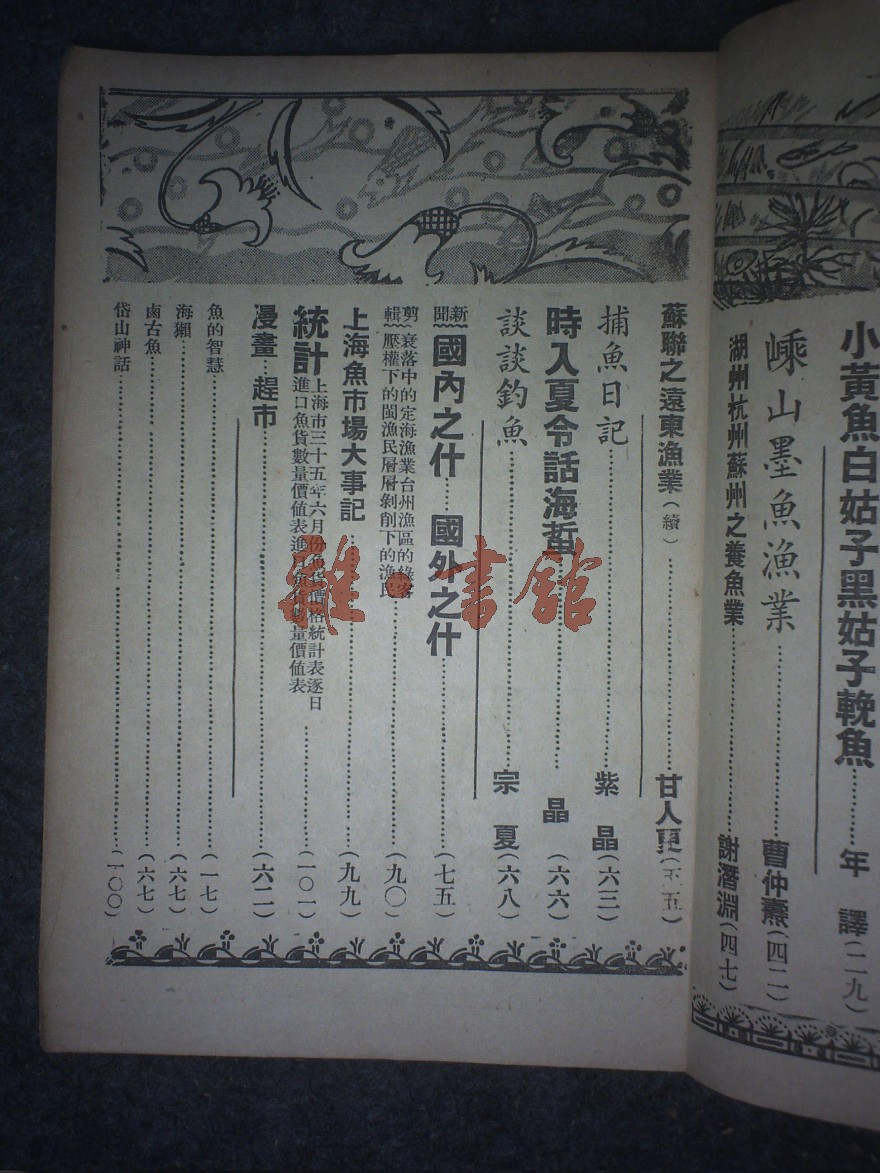 小黃魚白姑子黑姑子鞔魚…………年 譯(二九)
嵊山墨魚漁業…………曹仲燾(四二)
湖州杭州蘇州之養魚業…………謝潛淵(四七)
蘇聯之遠東漁業(續)…………甘人(五五)
捕魚日記…………紫 晶(六三)
時入夏令話海蜇…………晶(六六)
談談釣魚…………宗 夏(六八)
新聞 國內之什…… 國外之什…………(七五)
剪輯 衰落中的定海漁業台州漁區的綠客
壓權下的閩漁民層層剝削下的漁民…………(九〇)
上海魚市場大事記…………(九九)
統計 上海市三十五年六月份魚貨價格統計表逐日
進口魚貨數量價值表進口魚貨數量價值表…………(一〇一)
漫畫…趕市…………(六二)
魚的智慧…………(一七)
海獺…………(六七)
鹵古魚…………(六七)
岱山神話…………(一〇〇)
雜書館